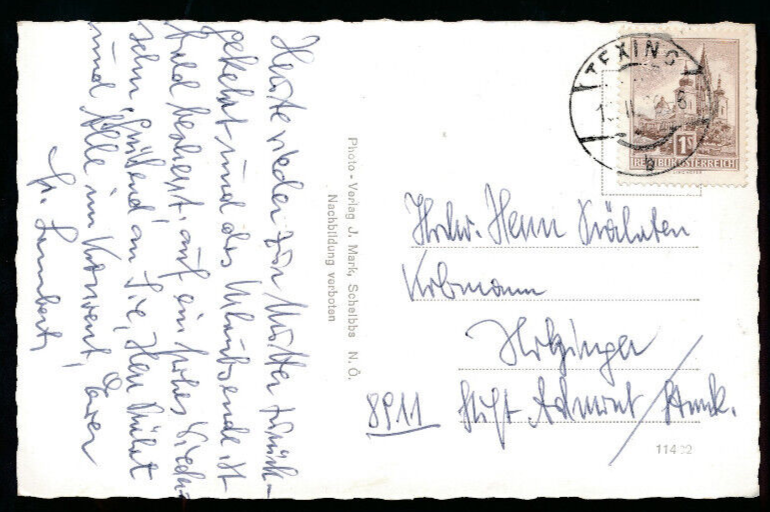 Heute wieder zur Mutter zurück-
gekehrt und das Urlaubsende ist
bald auf ein frohes Wieder-
sehn, Grüßend an Sie, Herr Prälat
und Alle im Konvent, Euer
fr. Lambert
Photo-Verlag J. Mark, Scheibbs N. Ö.
Nachbildung verboten
TEXING
b
1S
REPUBLIK ÖSTERREICH
Hochw. Herrn Prälaten
Koloman
Holzinger
8911 Stift Admont / Stmk.